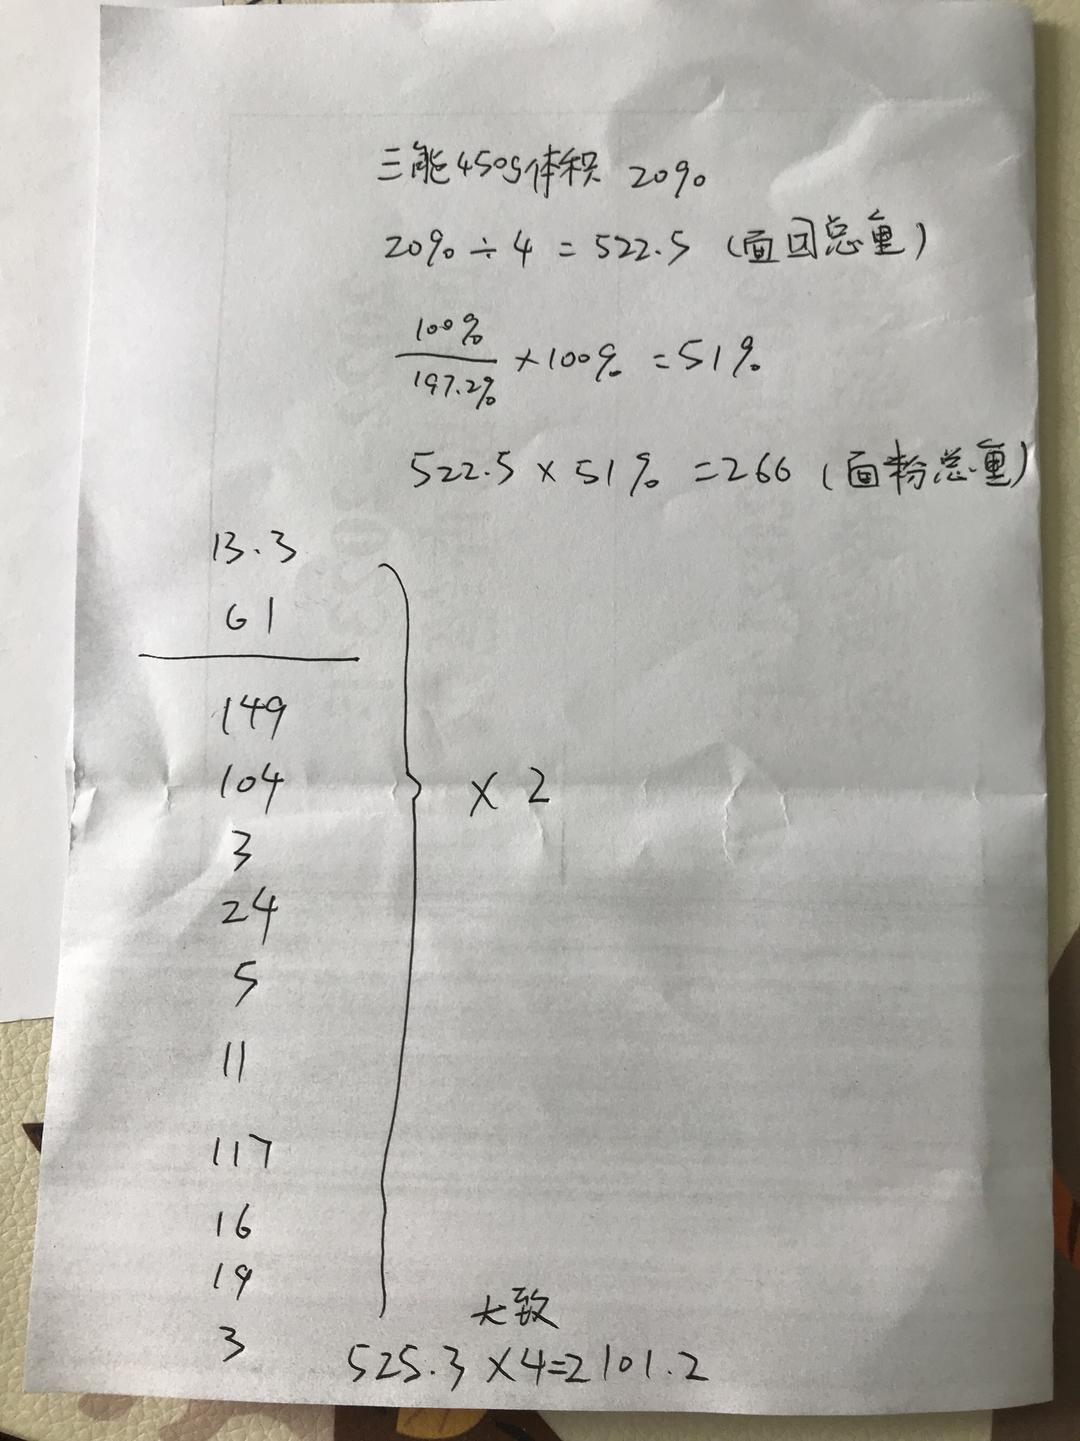 三能450g体积 2090
2090÷4=522.5(面团总重)
100%/197.2%×100%=51%
522.5×51%=266(面粉总重)
13.3
61
149
104
3
24
5
11
117
16
19
3
×2
大致
525.3×4=2101.2